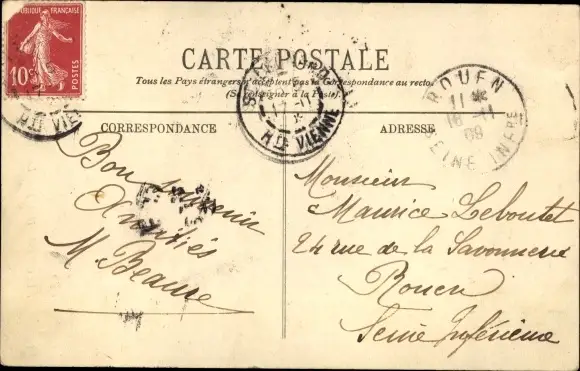 RÉPUBLIQUE FRANÇAISE
10c
POSTES
CARTE POSTALE
Tous les Pays étrangers n'acceptent pas la Correspondance au recto
(Se renseigner à la Poste)
HTE VIENNE
HTE VIENNE
ROUEN
11
16 -11
09
SEINE INFRE
CORRESPONDANCE
ADRESSE
Bon souvenir
Amitiés
M. Beaure
Monsieur
Maurice Leboutet
24 rue de la Savonnerie
Rouen
Seine Inférieure